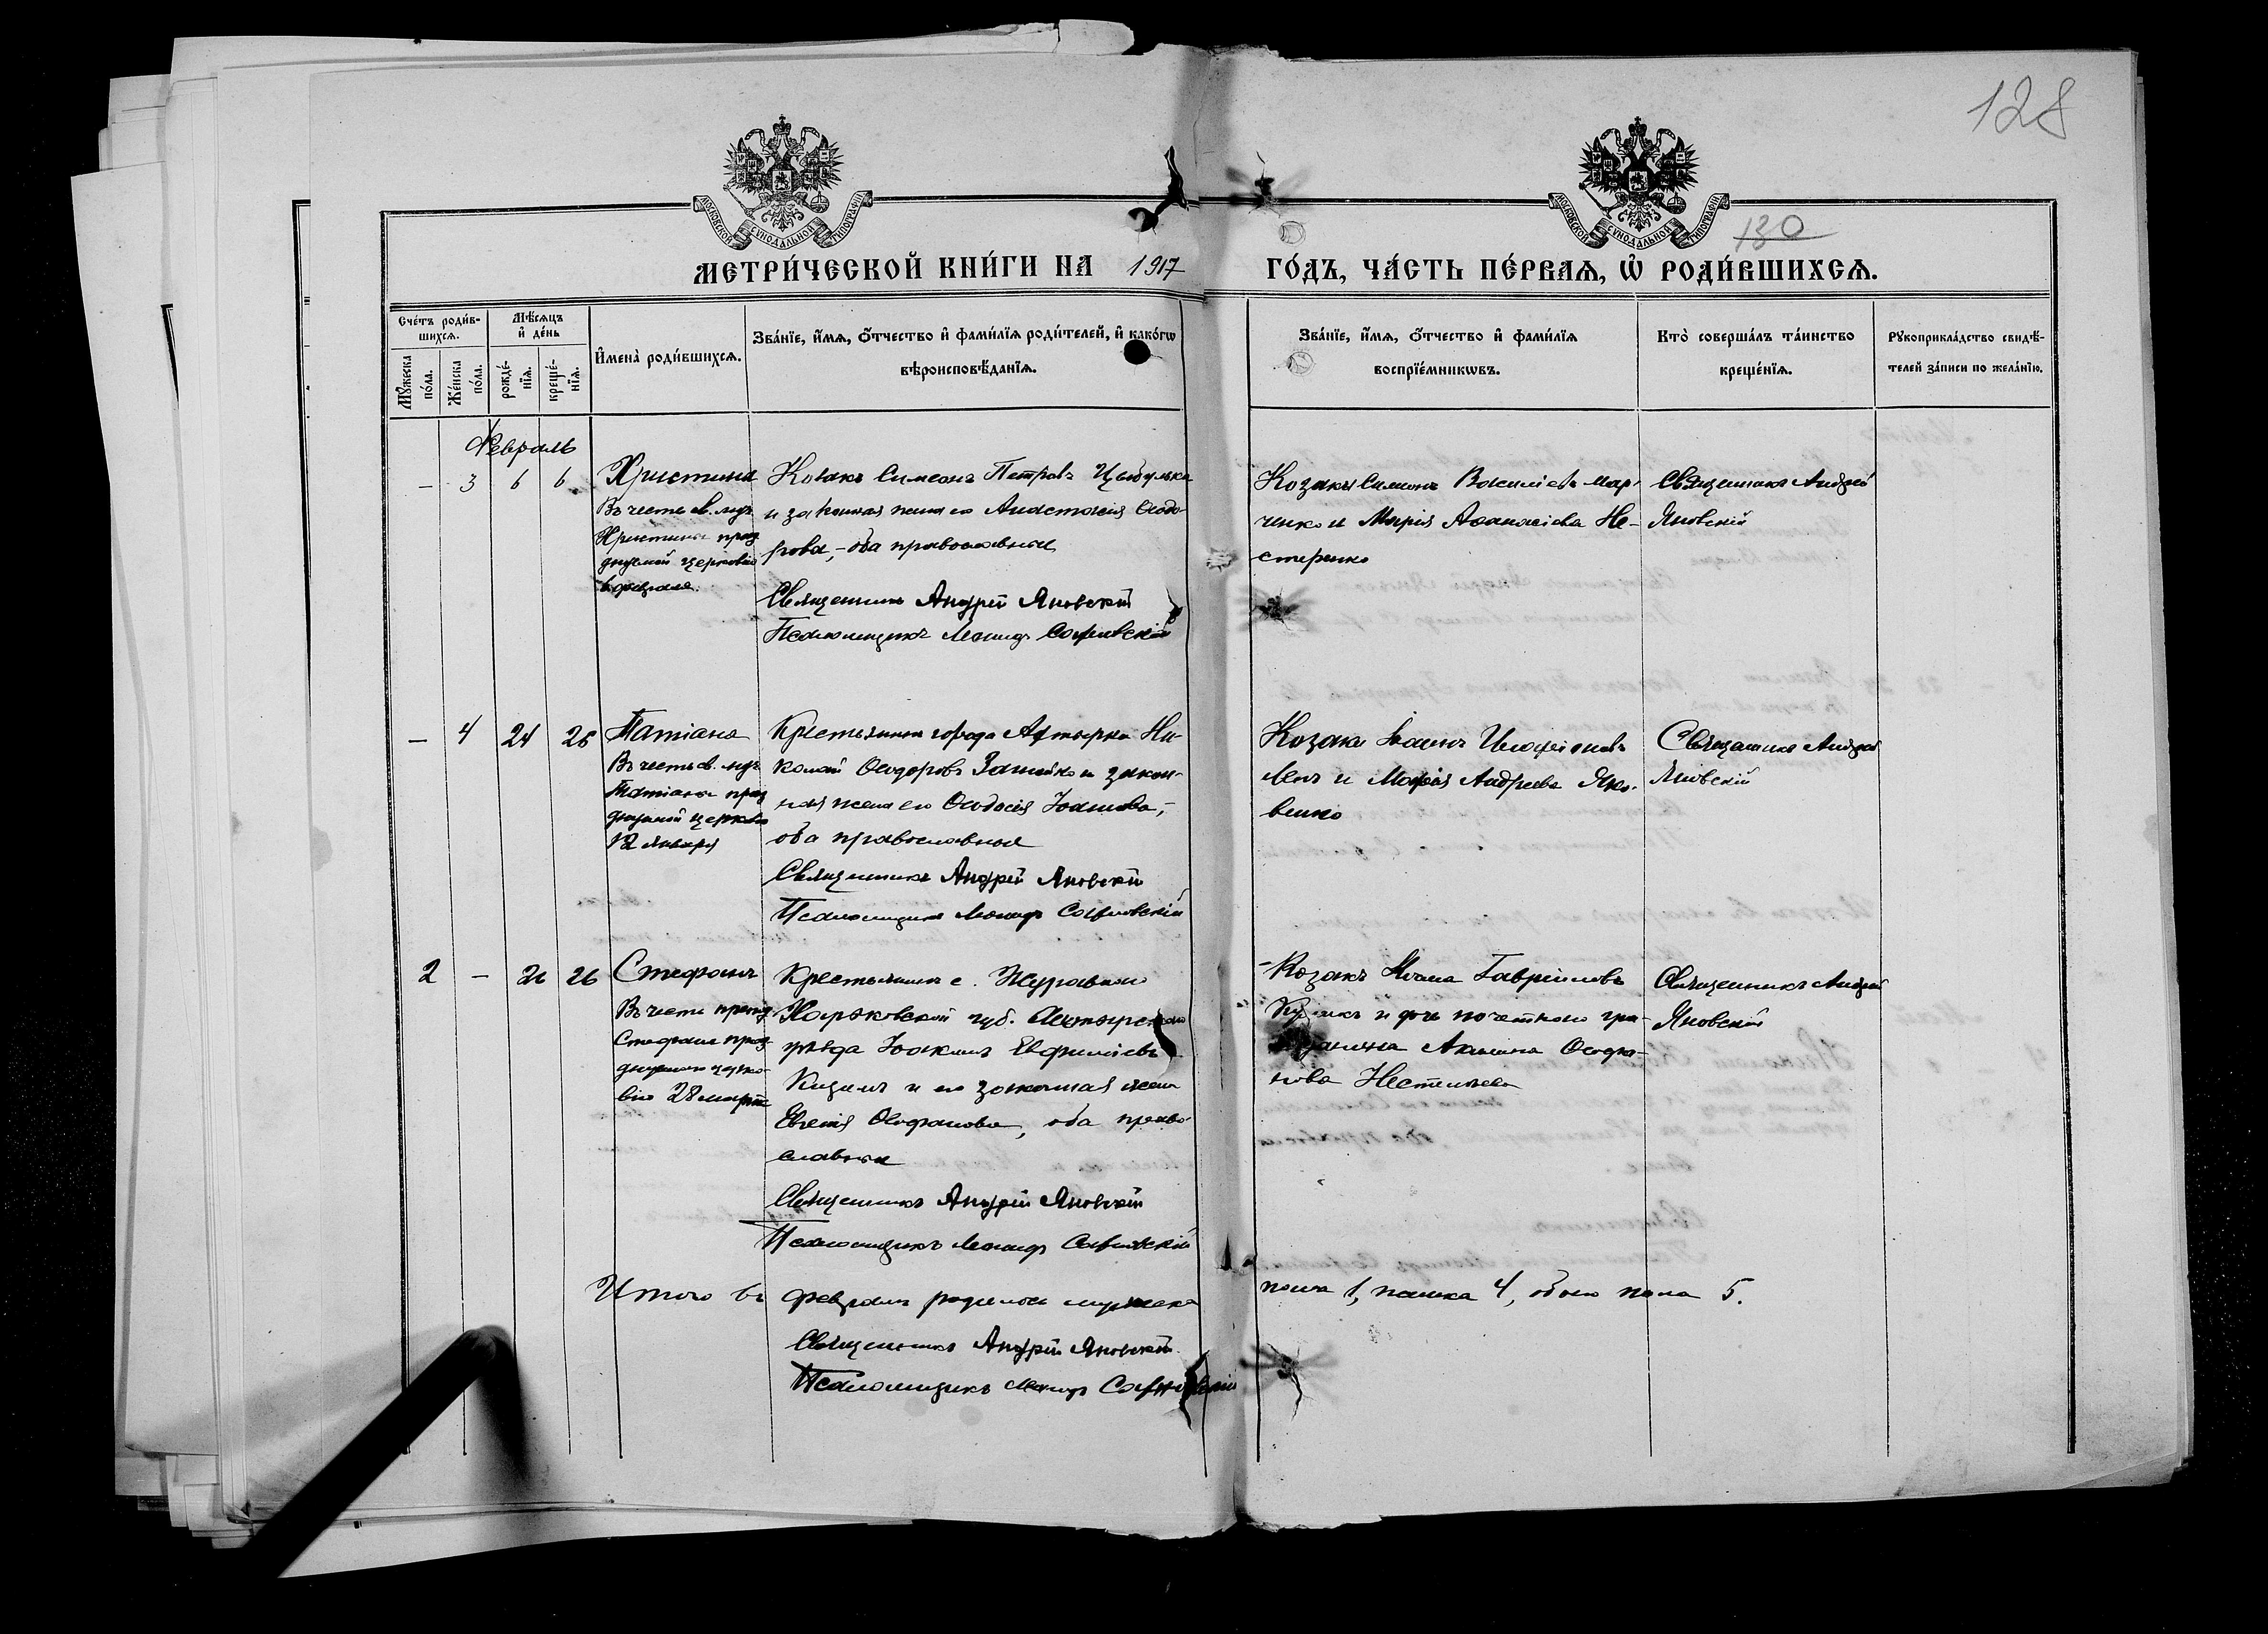 128
130
МЕТРИ́ЧЕСКОЙ КНИ́ГИ НА 1917 ГО́ДЪ, ЧА́СТЬ ПЕ́РВАѦ, Ѡ҆ РОДИ́ВШИХСѦ.
Сче́тъ роди́в-
шихсѧ.
Мꙋ́жеска
по́ла.
Же́нска
по́ла.
Мѣ́сѧцъ
и҆ де́нь
рожде́-
нїѧ.
креще́-
нїѧ.
И҆мена̀ роди́вшихсѧ.
Зва́нїе, и҆́мѧ, ѻ҆́тчество и҆ фами́лїѧ роди́телей, и҆ како́гѡ
вѣроисповѣ́данїѧ.
Зва́нїе, и҆́мѧ, ѻ҆́тчество и҆ фами́лїѧ
воспрїе́мникѡвъ.
Кто̀ соверша́лъ та́инство
креще́нїѧ.
Рꙋкоприкла́дство свидѣ́-
телей за́писи по жела́нїю.
Февраль
— 3 6 6
Христина
Въ честь св. муч.
Христины праз
днуемой церковію
6 февраля.
Козакъ Симеонъ Петровъ Цыбулька
и законная жена его Анастасія Ѳеодо-
рова, – оба православные
Священникъ Андрей Яновскій
Псаломщикъ Леонидъ
Козакъ Симеонъ Василіевъ Мар-
ченко и Марія Аѳанасіева Не-
стеренко
Священникъ Андрей
Яновскій
— 4 24 26
Татіана
Въ честь св. муч.
Татіаны праз
днуемой церковію
12 января
Крестьянинъ города Ахтырки Ни-
колай Ѳеодоровъ и закон-
ная жена его Ѳеодосія Іоаннова, –
оба православные
Священникъ Андрей Яновскій
Псаломщикъ Леонидъ
Козакъ Іоаннъ
и Марія Андреева Яко-
венко
Священникъ Андрей
Яновскій
2 — 26 26
Стефанъ
Въ честь препод.
Стефана праз-
днуемаго церко-
вію 28 марта
Крестьянинъ с. Журавнаго
Харьковской губ. Ахтырскаго
уѣзда Іоакимъ Евфиміевъ
и его законная жена
Евгенія Ѳеофанова, оба право-
славные
Священникъ Андрей Яновскій
Псаломщикъ Леонидъ
Козакъ Гавріиловъ
и дочь почетнаго гра-
жданина Акилина Ѳеофа-
нова
Священникъ Андрей
Яновскій
Итого въ февралѣ родилось мужеска пола 1, женска 4, обоего пола 5.
Священникъ Андрей Яновскій
Псаломщикъ Леонидъ